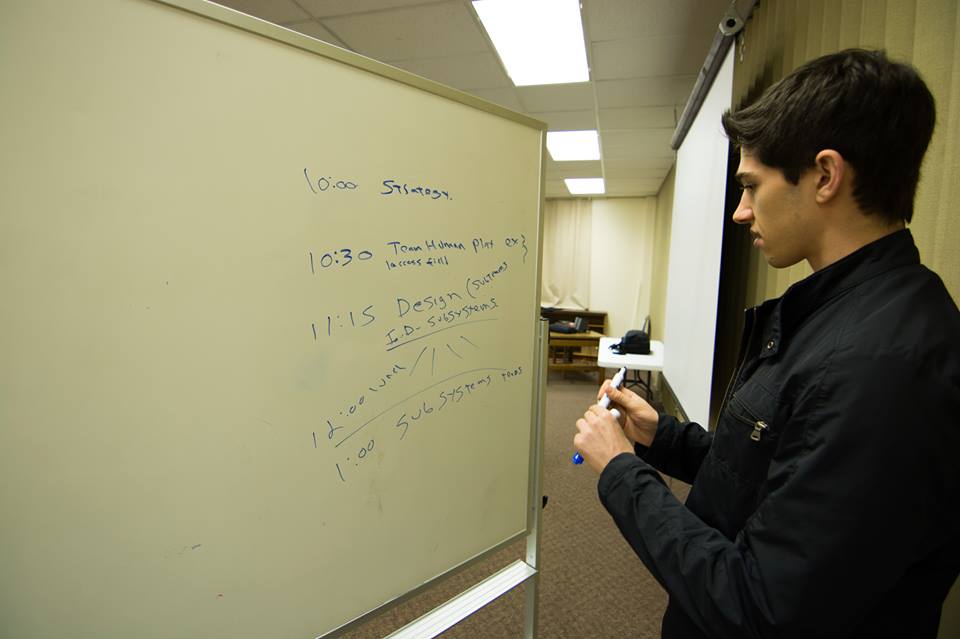 10:00 Strategy.
10:30 Team Human Play ex }
1access field
11:15 Design (Subteams
I.D- Subsystems
12:00
1:00 Subsystems